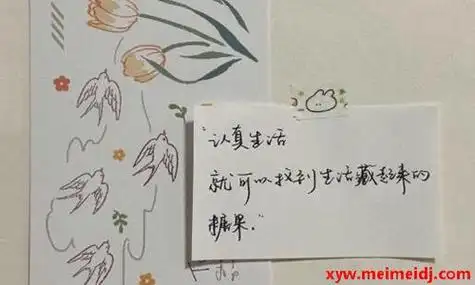 “认真生活
就可以找到生活藏起来的
糖果.”
xyw.meimeidj.com